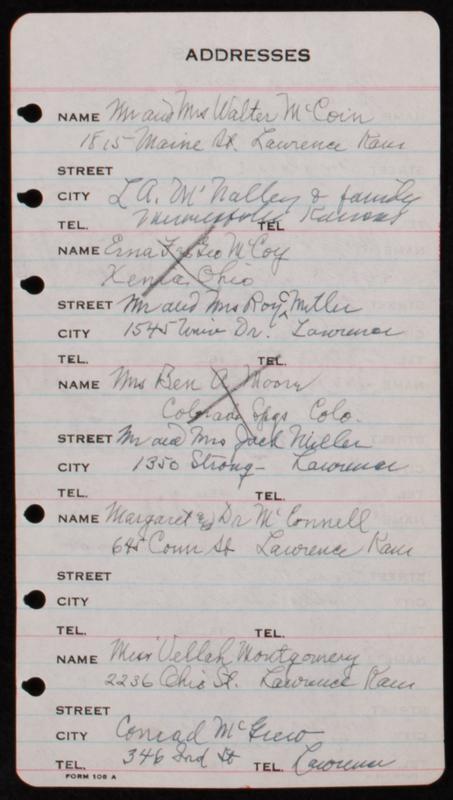 ADDRESSES
NAME Mr and Mrs Walter McCoin
1815 Maine St. Lawrence Kans
STREET
CITY L A. McNalley & family
TEL. Kansas TEL
NAME Erna & Geo McCoy
Xenia, Ohio
STREET Mr and Mrs Roy Miller
CITY 1545 Univ Dr. Lawrence
TEL. TEL.
NAME Mrs Ben A Moore
Colorado Spgs Colo.
STREET Mr and Mrs Jack Miller
CITY 1350 Strong - Lawrence
TEL. TEL.
NAME Margaret & Dr McConnell
645 Conn St Lawrence Kans
STREET
CITY
TEL. TEL.
NAME Miss Vellah Montgomery
2236 Ohio St. Lawrence Kans
STREET
CITY Conrad McGrew
TEL. 346 Ind St TEL. Lawrence
FORM 108 A